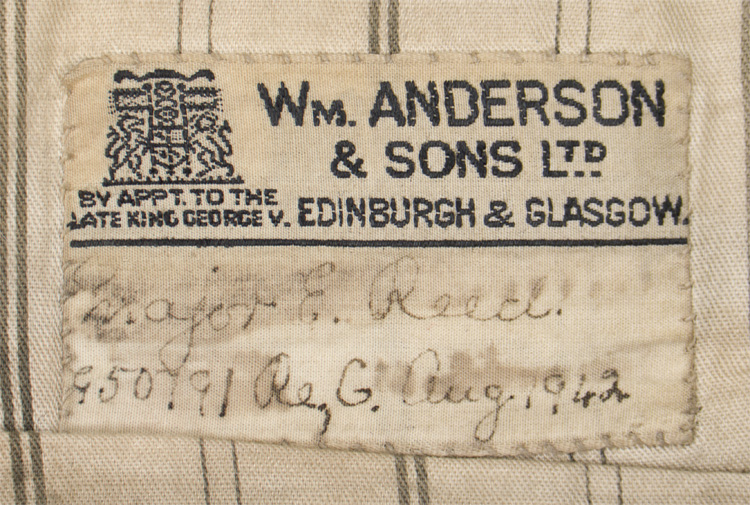 WM. ANDERSON
& SONS LTD
BY APPT. TO THE
LATE KING GEORGE V. EDINBURGH & GLASGOW.
Major E. Reed.
Aug. 1942